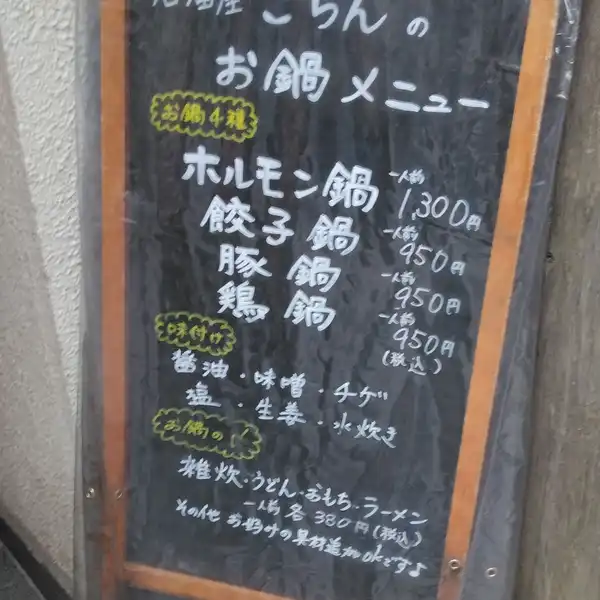 ごちんの
お鍋メニュー
お鍋4種
ホルモン鍋 一人前 1,300円
餃子鍋 一人前 950円
豚鍋 一人前 950円
鶏鍋 一人前 950円
(税込)
味付け
醤油・味噌・チゲ
塩・生姜・水炊き
お鍋の〆
雑炊・うどん・おもち・ラーメン
一人前 各380円(税込)
その他 お好みの具材追加okです♪